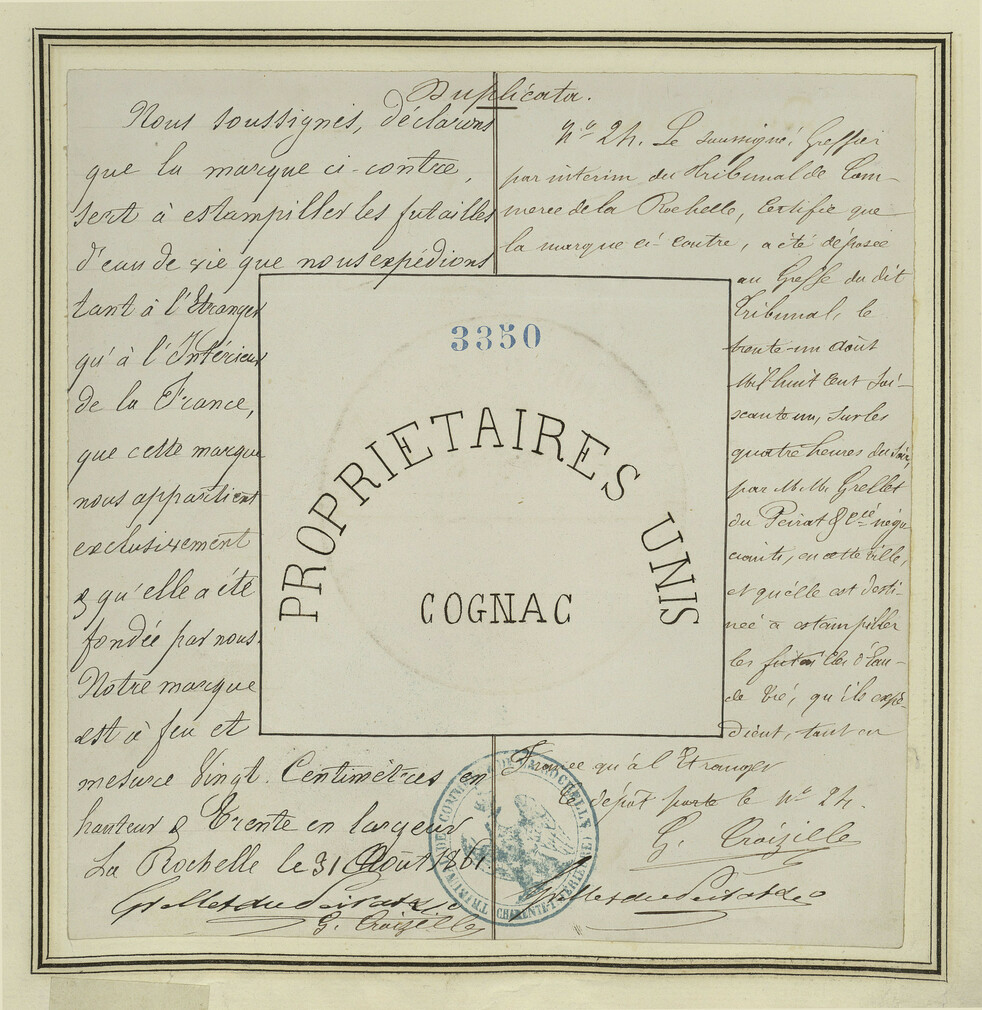 Duplicata.
Nous soussignés, déclarons
que la marque ci-contre,
sert à estampiller les futailles
d'eau de vie que nous expédions
tant à l'Etranger
qu'à l'Intérieur
de la France,
que cette marque
nous appartient
exclusivement
& qu'elle a été
fondée par nous.
Notre marque
est à feu et
mesure Vingt Centimètres en
hauteur & Trente en largeur
La Rochelle le 31 Août 1861
Grellet du Peirat & Co
G. Croizille
3350
PROPRIETAIRES UNIS
COGNAC
No 24. Le soussigné, Greffier
par intérim du Tribunal de Com-
merce de la Rochelle, Certifie que
la marque ci-contre, a été déposée
au Greffe du dit
Tribunal, le
trente-un août
Mil huit cent soi-
xante un, sur les
quatre heures du soir,
par M.M. Grellet
du Peirat & Cie négo
ciants, en cette ville,
et qu'elle est desti-
née à estampiller
les futailles d'Eau-
de Vie, qu'ils expé-
dient, tant en
France qu'à l'Etranger
Le dépôt porte le no 24.
G. Croizille
Grellet du Peirat & Co
TRIBUNAL DE COMMERCE DE LA ROCHELLE
CHARENTE-INFERIEURE